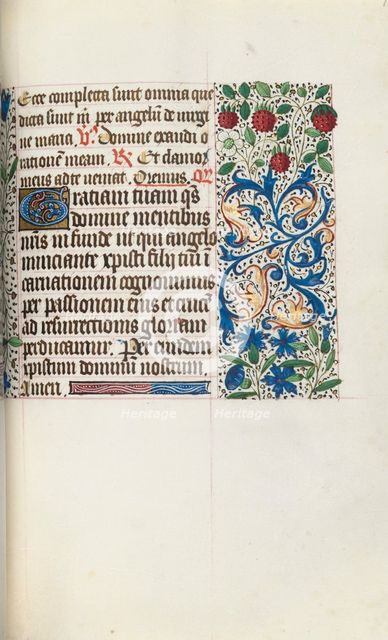 Ecce completa sunt omnia que
dicta sunt p̄ angelū de virgi
ne maria. V̄. Domine exaudi o
rationē meam. R̄. Et clamor
meus ad te veniat. Oremus. Or̄.
Gratiam tuam q̄s
domine mentibus
nr̄is infunde ut qui angelo
nunciante xp̄isti filij tui i
carnationem cognouimus
per passionem eius et crucē
ad resurrectionis gloriam
perducamur. Per eundem
xp̄istum dominum nostrum.
Amen.
Heritage
Heritage